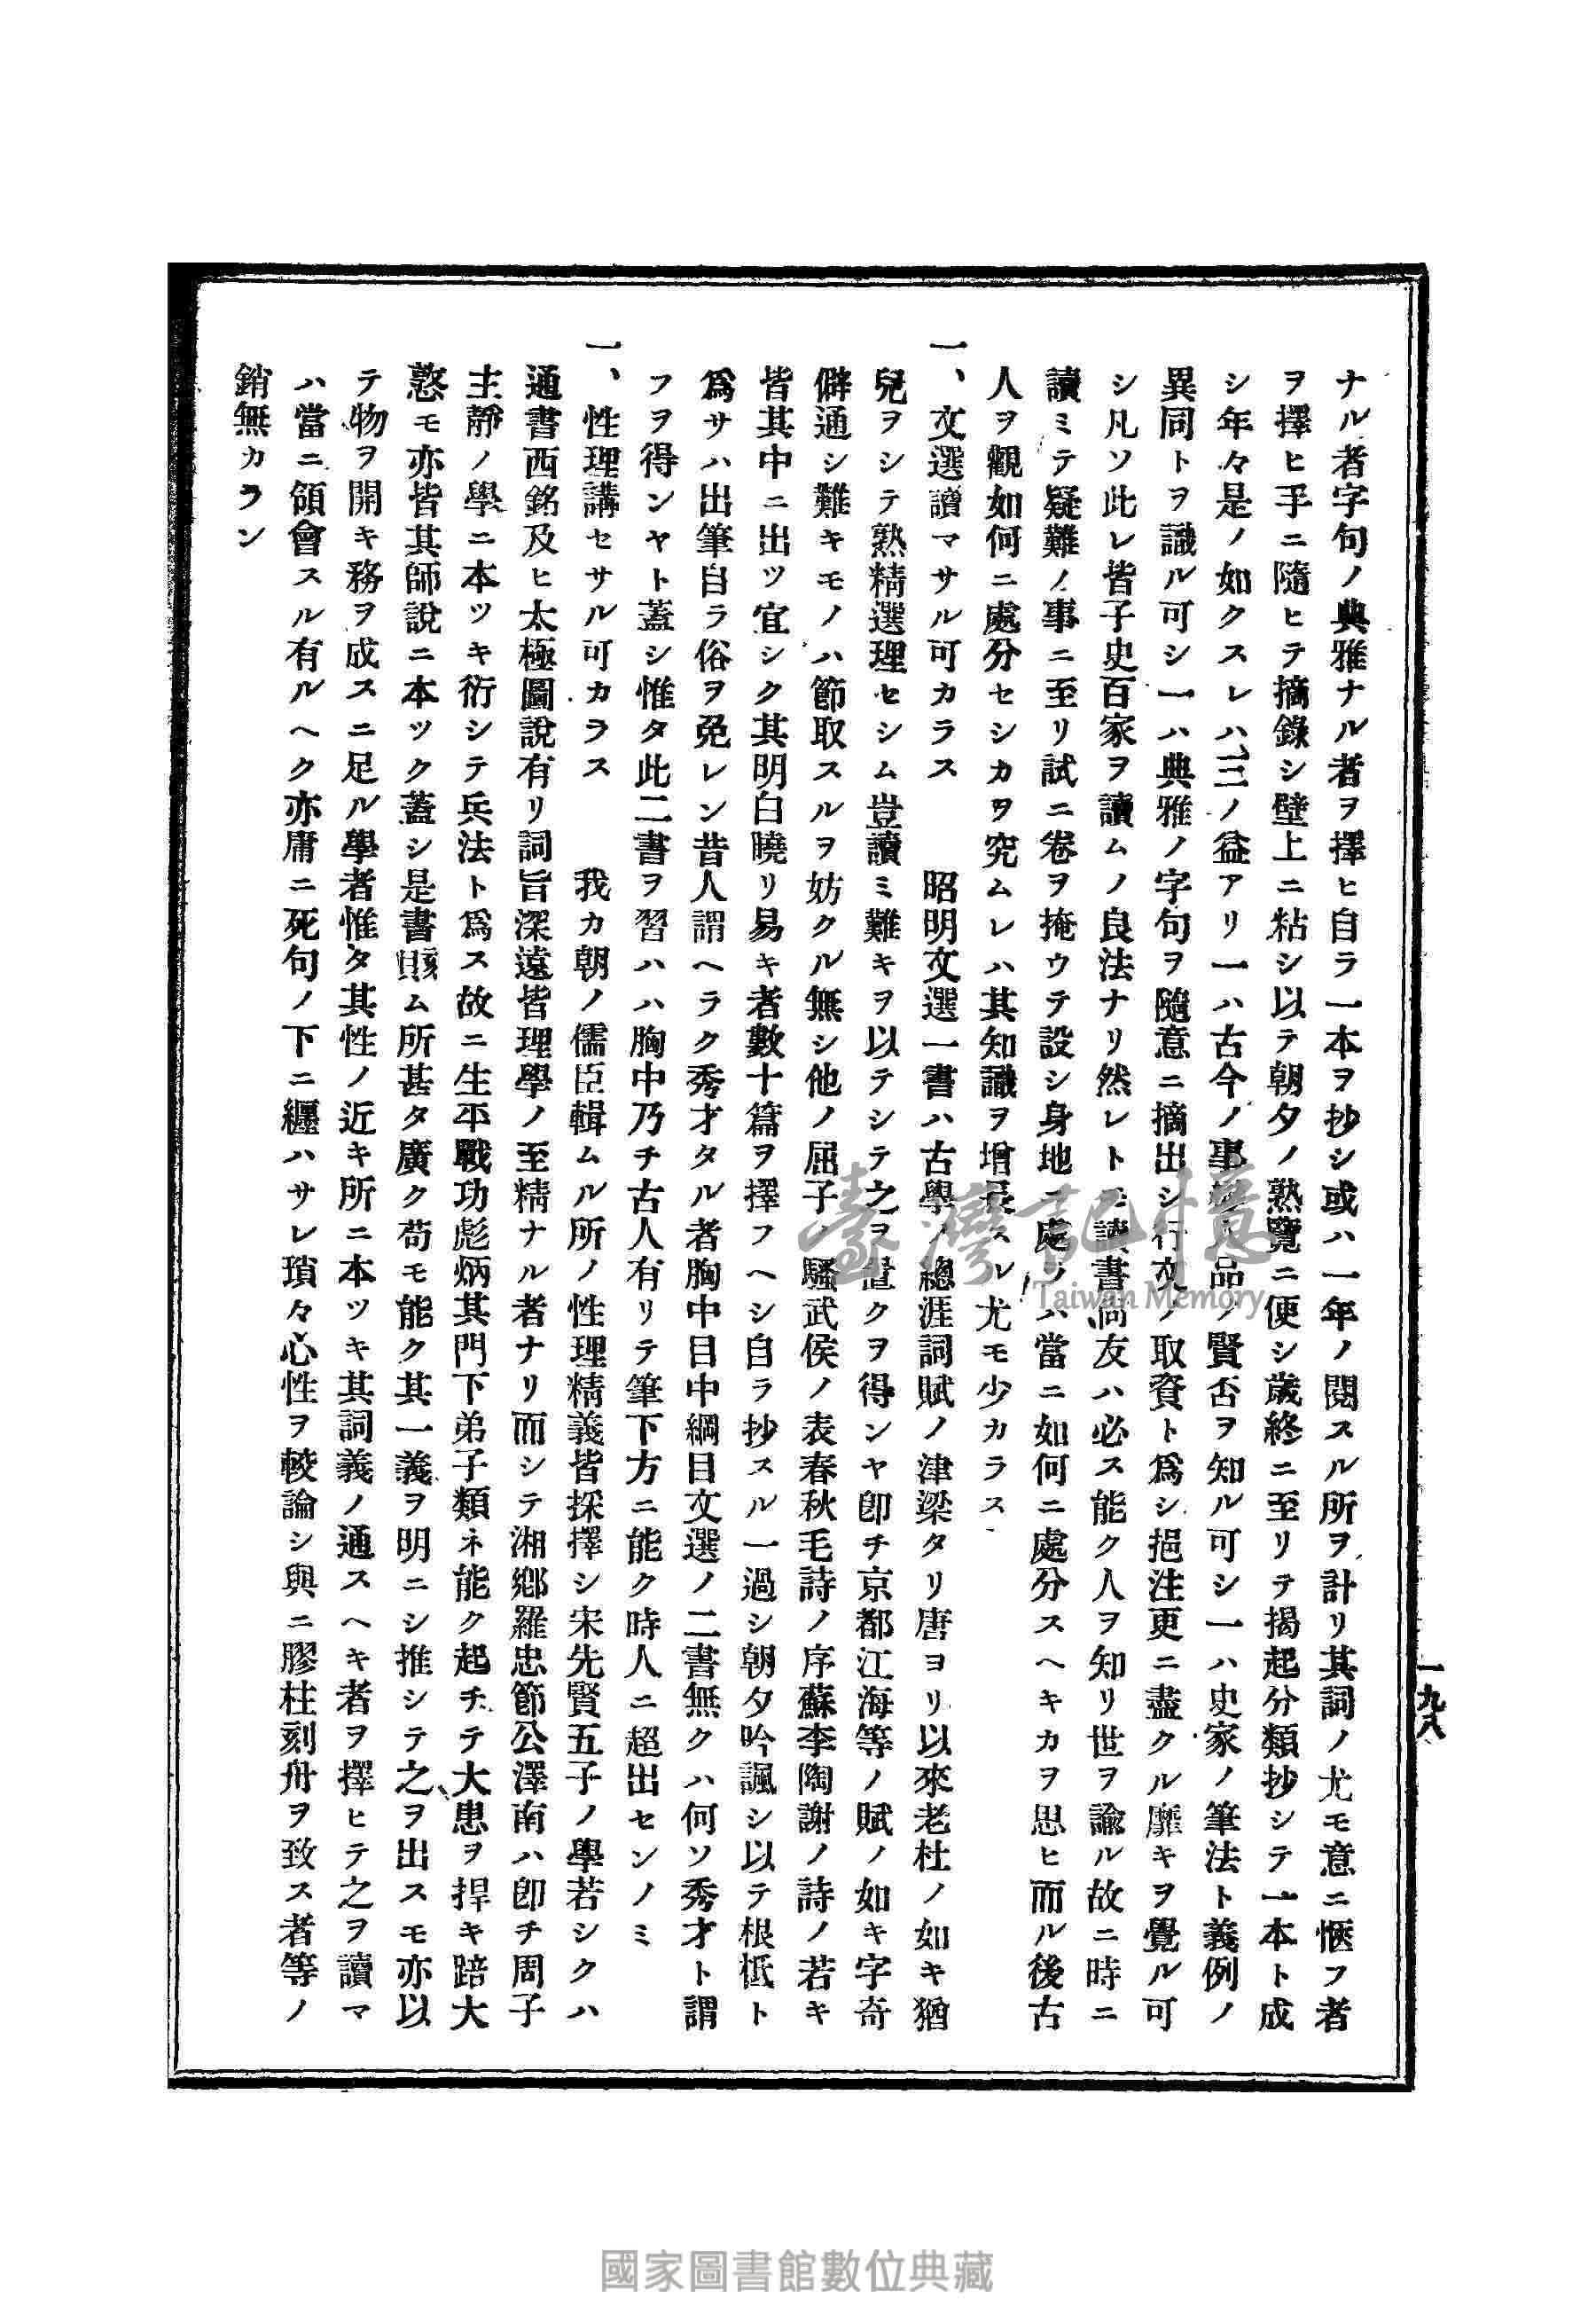 ナル者字句ノ典雅ナル者ヲ擇ヒ自ラ一本ヲ抄シ或ハ一年ノ閱スル所ヲ計リ其詞ノ尤モ意ニ愜フ者
ヲ擇ヒ手ニ隨ヒテ摘錄シ壁上ニ粘シ以テ朝夕ノ熟覽ニ便シ歲終ニ至リテ揭起分類抄シテ一本ト成
シ年々是ノ如クスレハ三ノ益アリ一ハ古今ノ事人品ノ賢否ヲ知ル可シ一ハ史家ノ筆法ト義例ノ
異同トヲ識ル可シ一ハ典雅ノ字句ヲ隨意ニ摘出シ行文ノ取資ト爲シ挹注更ニ盡クル靡キヲ覺ル可
シ凡ソ此レ皆子史百家ヲ讀ムノ良法ナリ然レトモ讀書尙友ハ必ス能ク人ヲ知リ世ヲ論ル故ニ時ニ
讀ミテ疑難ノ事ニ至リ試ニ卷ヲ掩ウテ設シ身地ニ處ラハ當ニ如何ニ處分スヘキカヲ思ヒ而ル後古
人ヲ觀如何ニ處分セシカヲ究ムレハ其知識ヲ增長スル尤モ少カラス
一、文選讀マサル可カラス　昭明文選一書ハ古學ノ總涯詞賦ノ津梁タリ唐ヨリ以來老杜ノ如キ猶
兒ヲシテ熟精選理セシム豈讀ミ難キヲ以テシテ之ヲ置クヲ得ンヤ卽チ京都江海等ノ賦ノ如キ字奇
僻通シ難キモノハ節取スルヲ妨クル無シ他ノ屈子ノ騷武侯ノ表春秋毛詩ノ序蘇李陶謝ノ詩ノ若キ
皆其中ニ出ツ宜シク其明白曉リ易キ者數十篇ヲ擇フヘシ自ラ抄スル一過シ朝夕吟諷シ以テ根柢ト
爲サハ出筆自ラ俗ヲ免レン昔人謂ヘラク秀才タル者胸中目中綱目文選ノ二書無クハ何ソ秀才ト謂
フヲ得ンヤト蓋シ惟タ此二書ヲ習ハハ胸中乃チ古人有リテ筆下方ニ能ク時人ニ超出センノミ
一、性理講セサル可カラス　我カ朝ノ儒臣輯ムル所ノ性理精義皆採擇シ宋先賢五子ノ學若シクハ
通書西銘及ヒ太極圖說有リ詞旨深遠皆理學ノ至精ナル者ナリ而シテ湘鄉羅忠節公澤南ハ卽チ周子
主靜ノ學ニ本ツキ衍シテ兵法ト爲ス故ニ生平戰功彪炳其門下弟子類ネ能ク起チテ大患ヲ捍キ踣大
憝モ亦皆其師說ニ本ツク蓋シ是書賅ム所甚タ廣ク苟モ能ク其一義ヲ明ニシ推シテ之ヲ出スモ亦以
テ物ヲ開キ務ヲ成スニ足ル學者惟タ其性ノ近キ所ニ本ツキ其詞義ノ通スヘキ者ヲ擇ヒテ之ヲ讀マ
ハ當ニ領會スル有ルヘク亦庸ニ死句ノ下ニ纒ハサレ瑣々心性ヲ較論シ與ニ膠柱刻舟ヲ致ス者等ノ
銷無カラン
一九八
臺灣記憶
Taiwan Memory
國家圖書館數位典藏